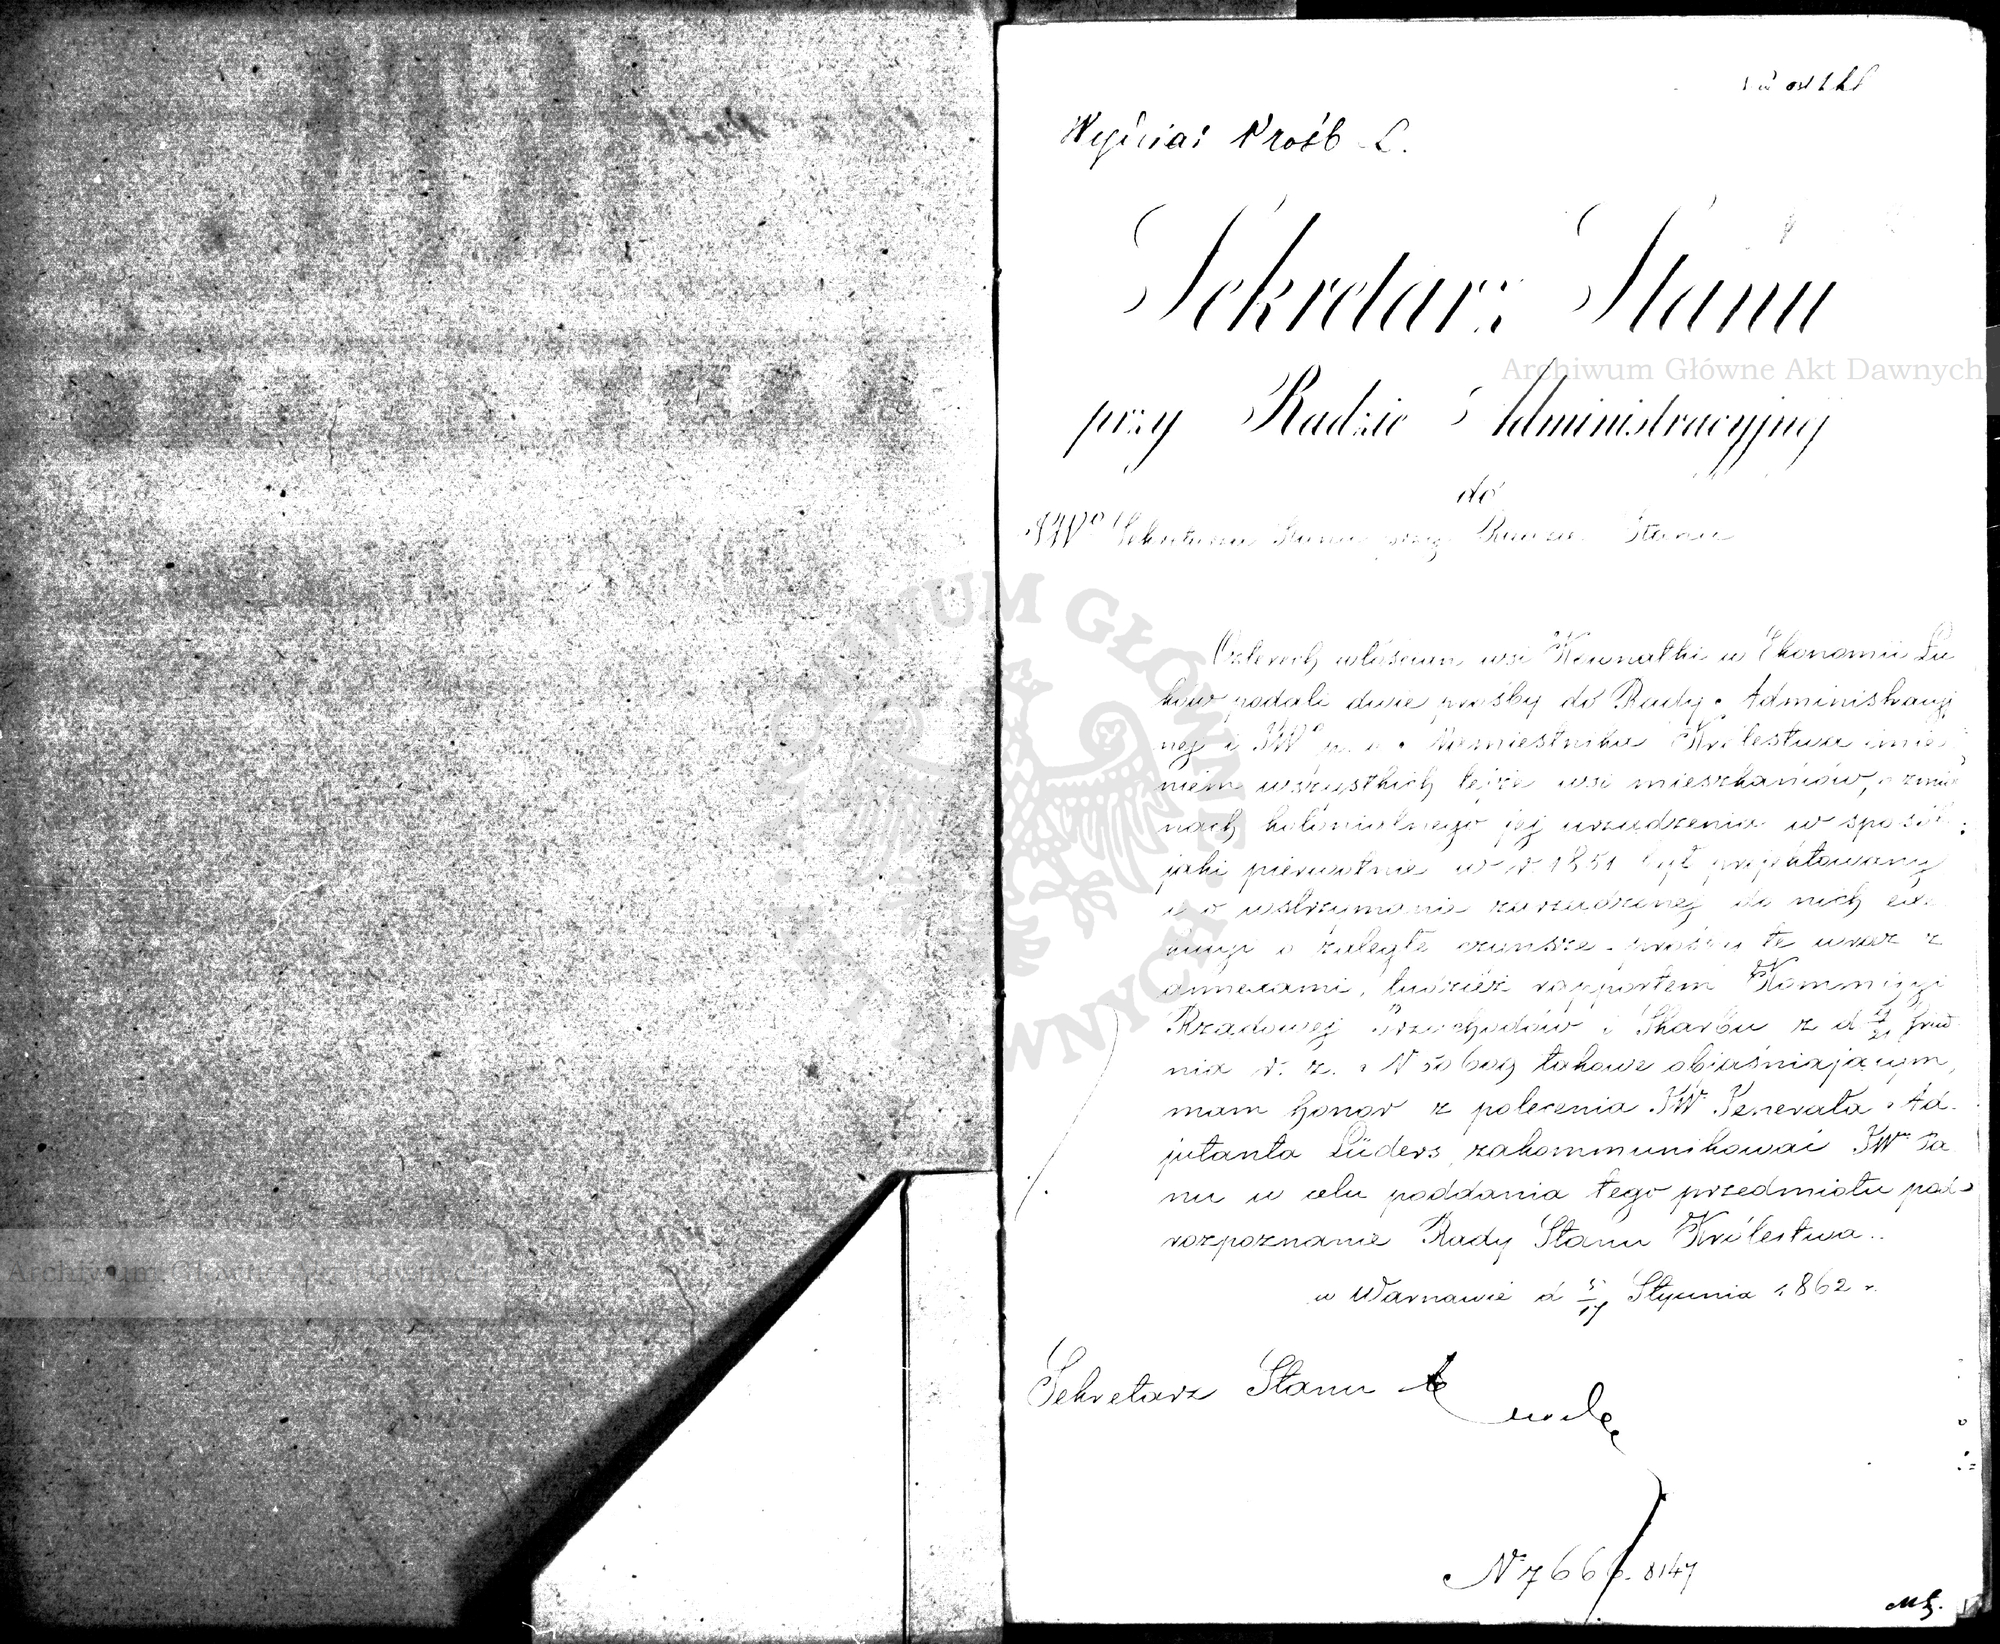 Wydział Próśb
Sekretarz Stanu
przy Radzie Administracyjnej
do
JWo Sekretarza Stanu przy Radzie Stanu
Czterech włościan wsi Kownatki w Ekonomii Łu
ków podali dwie prośby do Rady Administracyj
nej i JWo p. o. Namiestnika Królestwa imie
niem wszystkich tejże wsi mieszkańców, o zmia
nach kolonialnego jej urządzenia w sposób
jaki pierwotnie w r. 1851 był projektowany
a o wstrzymanie zarządzonej do nich
o zaległe czynsze. prośby te wraz z
annexami, tudzież rapportem Kommissyi
Rządowej Przychodów i Skarbu z d Grud
nia r. z. N 50609 takowe objaśniającym,
mam honor z polecenia JW Jenerała Ad
jutanta Lüders, zakommunikować JW Pa
nu w celu poddania tego przedmiotu pod
rozpoznanie Rady Stanu Królestwa.
w Warszawie d 5/17 Stycznia 1862 r.
Sekretarz Stanu
N 7666. 8147
Archiwum Główne Akt Dawnych
Archiwum Główne Akt Dawnych
ARCHIWUM GŁÓWNE AKT DAWNYCH